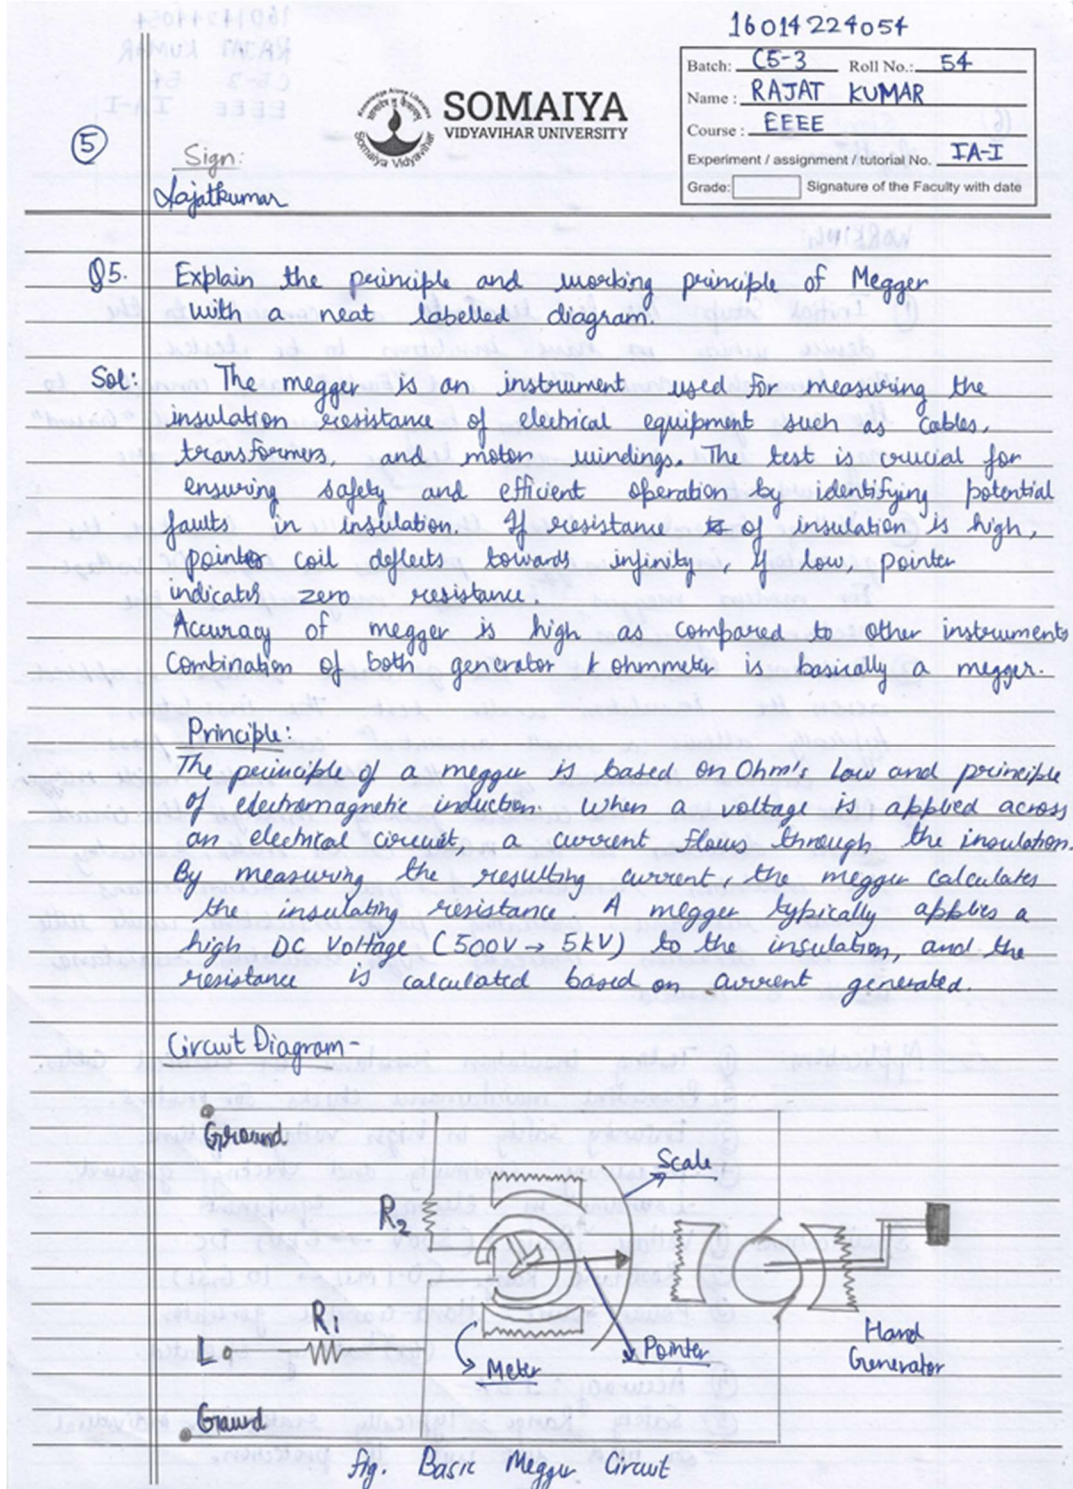 16014224054
Batch: C5-3 Roll No.: 54
Name: RAJAT KUMAR
Course: EEEE
Experiment / assignment / tutorial No. IA-I
Grade: Signature of the Faculty with date
SOMAIYA
VIDYAVIHAR UNIVERSITY
Somaiya Vidyavihar
5
Sign:
Rajatkumar
Q5. Explain the principle and working principle of Megger
with a neat labelled diagram.
Sol: The megger is an instrument used for measuring the
insulation resistance of electrical equipment such as cables,
transformers, and motor windings. The test is crucial for
ensuring safety and efficient operation by identifying potential
faults in insulation. If resistance of insulation is high,
pointer coil deflects towards infinity, if low, pointer
indicates zero resistance.
Accuracy of megger is high as compared to other instruments
Combination of both generator & ohmmeter is basically a megger.
Principle:
The principle of a megger is based on Ohm's Law and principle
of electromagnetic induction. When a voltage is applied across
an electrical circuit, a current flows through the insulation.
By measuring the resulting current, the megger calculates
the insulating resistance A megger typically applies a
high DC Voltage (500V → 5kV) to the insulation, and the
resistance is calculated based on current generated.
Circuit Diagram-
Ground
Scale
R2
R1
L
Meter
Pointer
Hand
Generator
Ground
fig. Basic Megger Circuit